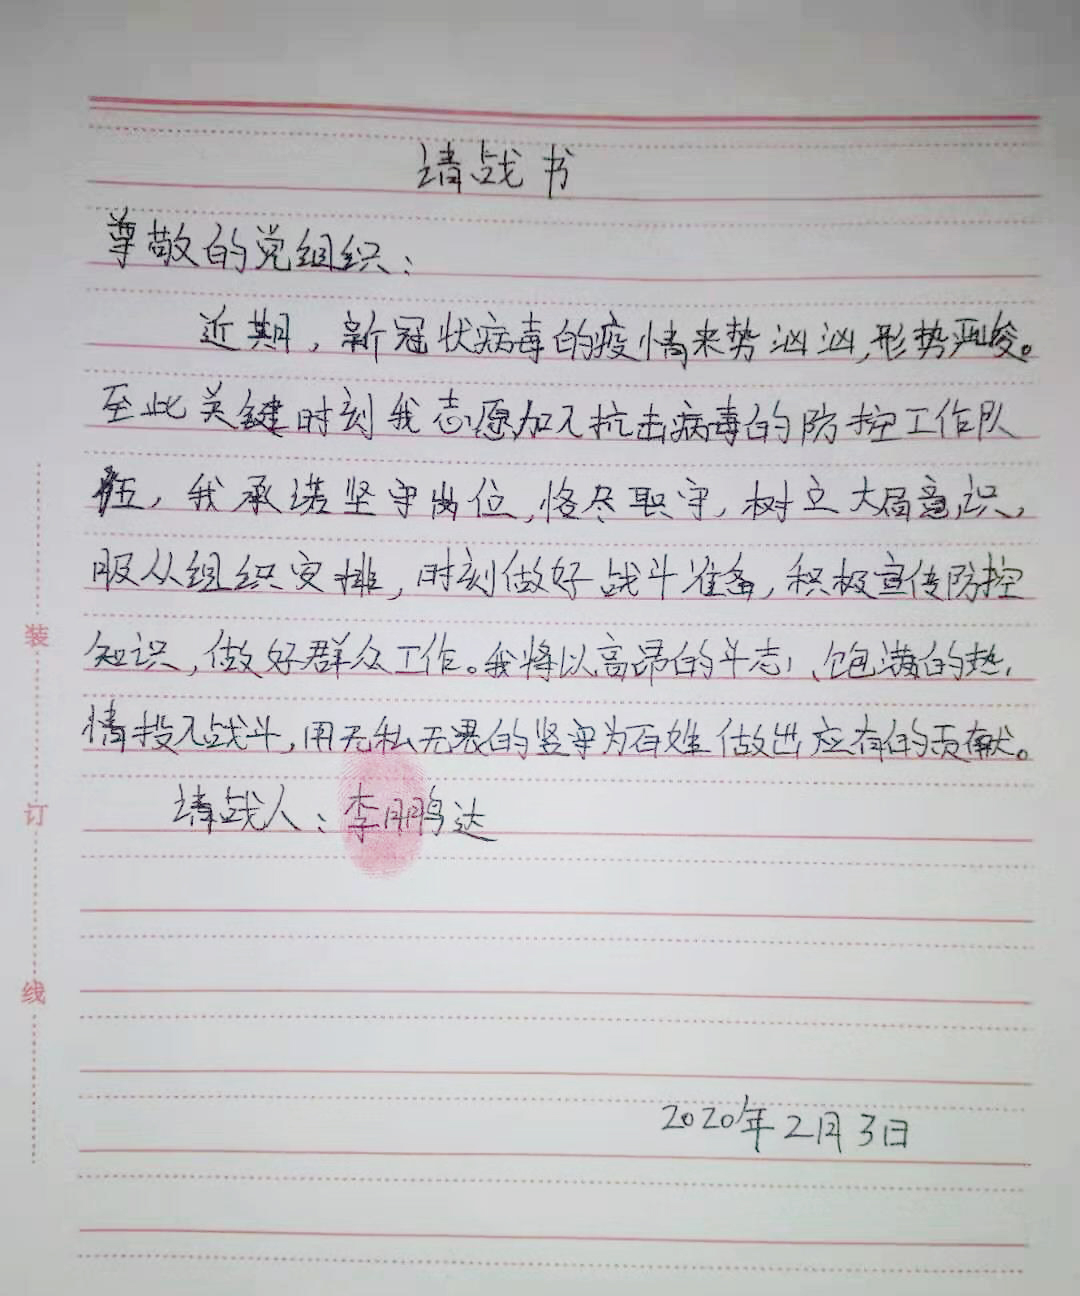 请战书
尊敬的党组织：
近期，新冠状病毒的疫情来势汹汹，形势严峻。
至此关键时刻我志愿加入抗击病毒的防控工作队
伍，我承诺坚守岗位，恪尽职守，树立大局意识，
服从组织安排，时刻做好战斗准备，积极宣传防控
知识，做好群众工作。我将以高昂的斗志、饱满的热
情投入战斗，用无私无畏的坚守为百姓做出应有的贡献。
请战人：李鹏达
2020年2月3日
装
订
线